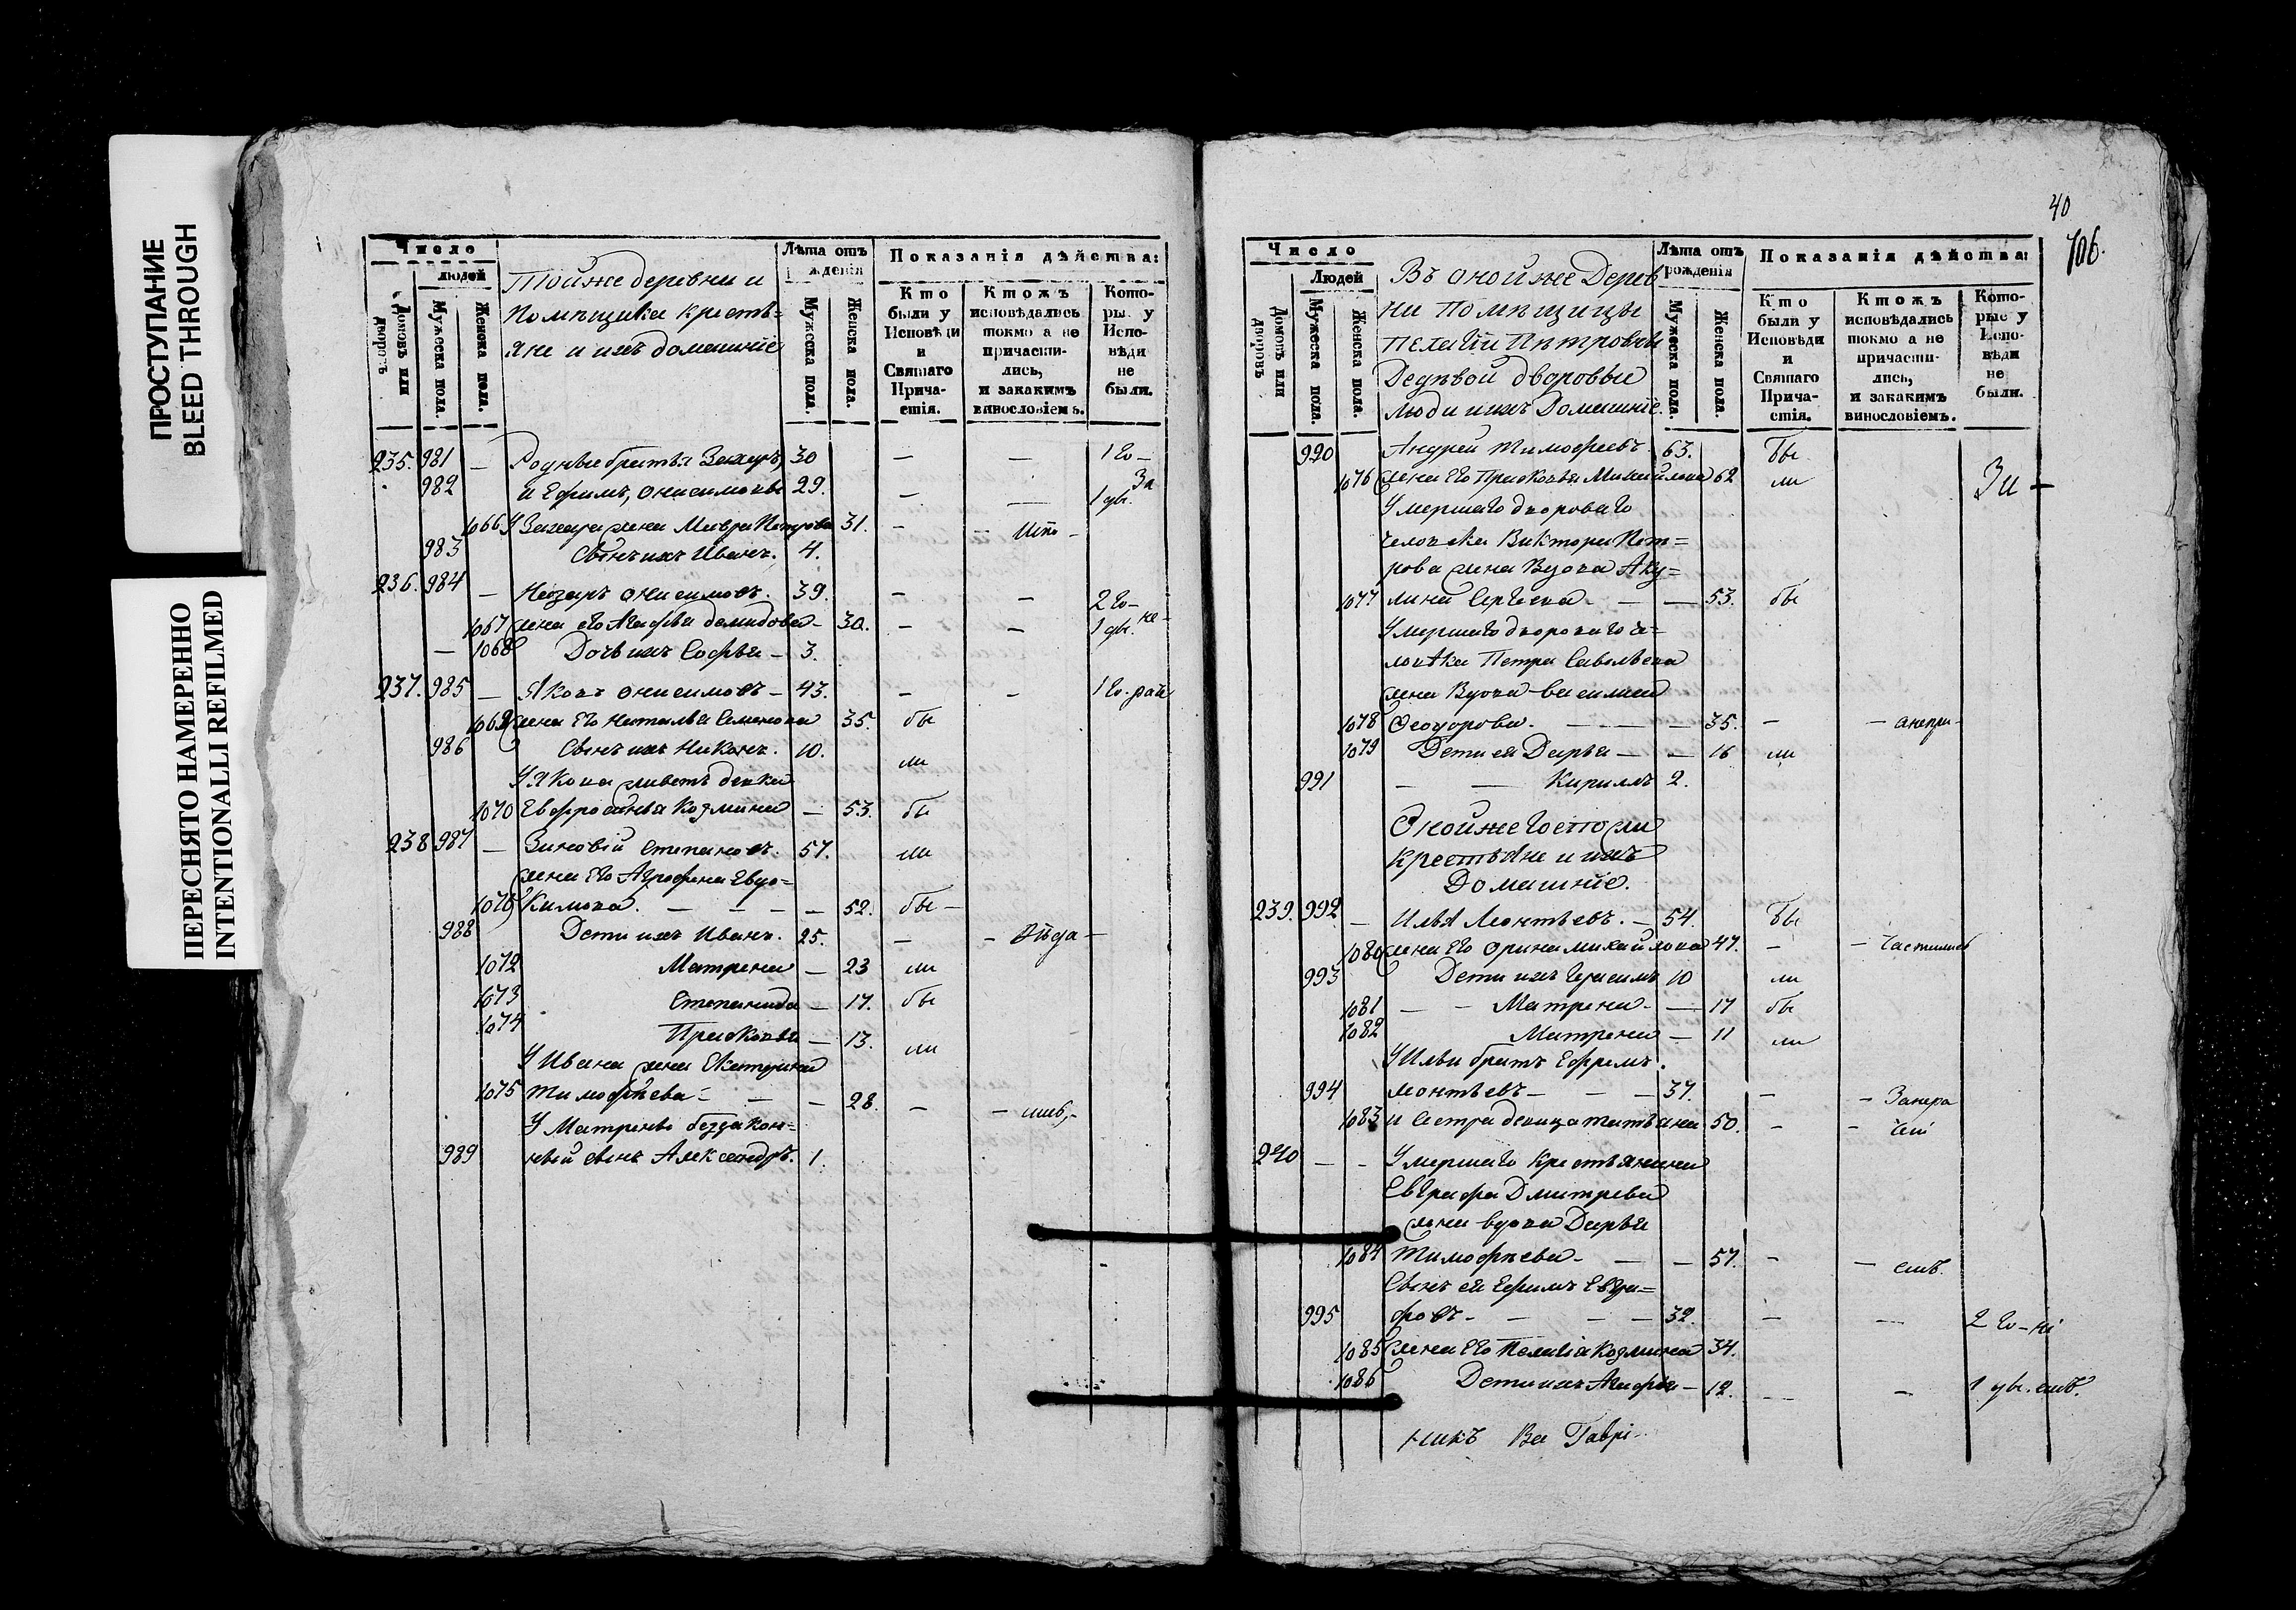 ПРОСТУПАНИЕ
BLEED THROUGH
ПЕРЕСНЯТО НАМЕРЕННО
INTENTIONALLI REFILMED
Число
людей
Домовъ или дворовъ
Мужеска пола.
Женска пола.
Тойже деревни и
помѣщика крестья=
яне и ихъ домашніе
Лѣта отъ
рожденія
Мужеска пола.
Женска пола.
Показанія дѣйства:
Кто были у Исповѣди и Святаго Прича-стія.
Ктожъ исповѣдались токмо а не причасти-лись, и закакимъ винословіемъ.
Кото-рые у Испо-вѣди не были.
235. 981 — Родные братья Захаръ, 30 — — 1 го —
982 и Ефимъ, Онисимовы 29. — — 1 ды. За
1066 У Захара жена Мавра Петрова 31. —
983 Сынъ ихъ Иванъ. 4.
236. 984 — Назаръ Онисимовъ. 39. — — 2 го —
1067 жена его Агафья Демидова — 30. — — 1 ды. не-
— 1068 Дочь ихъ Софья — 3.
237. 985 — Яковъ Онисимовъ — 43. — — 1 го.
1069 жена его Наталья Семенова 35. бы
986 Сынъ ихъ Никонъ. 10. ли
У Якова живетъ девка
1070 Евфросинья Козмина — 53. бы
238 987 — Зиновій Степановъ. 57. ли
жена его Агрофена Евдо=
Кимова. — — — — 52. бы —
988 Дети ихъ Иванъ. 25. —
1072 Матрена — 23 ли
1073 Степанида — 17. бы
1074 Прасковья — 13. ли
У Ивана жена Екатерина
1075 Тимофѣева — — — 28. —
У Матрены беззакон=
989 ный сынъ Александръ. 1.
40
106.
Число
Людей
Домовъ или дворовъ
Мужеска пола
Женска пола.
Въ оной же Дерев
ни Помѣщицы
Пелагіи Петровны
Дедѣвой дворовыи
люди и ихъ Домашніе.
Лѣта отъ
рожденія
Мужеска пола.
Женска пола.
Показанія дѣйства:
Кто были у Исповѣди и Святаго Прича-стія.
Ктожъ исповѣдались токмо а не причасти-лись, и закакимъ винословіемъ.
Кото-рые у Испо-вѣди не были.
990 Андрей Тимофеевъ. 63. бы
1076 жена его Прасковья Михайлова 62 ли
Умершаго двороваго
человека Виктора Пет=
рова жена Вдова Аку=
1077 лина Сергѣева — — 53. бы
Умершаго двороваго че=
ловѣка Петра Савельева
жена Вдова Василиса
1078 Феодорова. — — — 35. —
1079 Дети ея Дарья — — 16 ли
991 — — Кирилъ 2.
Оной же Госпожи
крестьяне и ихъ
Домашніе.
239. 992 — Илья Леонтьевъ. — 54. бы
1080 жена его Орина Михайлова 47. — — частились
993 Дети ихъ Герасимъ 10 ли
1081 — — Матрена — — 17 бы
1082 Матрена — 11 ли
У Ильи братъ Ефремъ.
994 Леонтьевъ — — — 37. —
1083 и Сестра девица Татьяна 50. — —
240 — — Умершаго Крестьянина
Евграфа Дмитрева
жена вдова Дарья
1084 Тимофѣева — — — 57. — —
Сынъ ея Ефимъ Евгра=
995 фовъ — — — — 32. — — 2 го —
1085 жена его Пелагія Козмина 34.
1086 Дети ихъ Агафья — 12. — — 1 ды.
никъ Ва Гаврі-